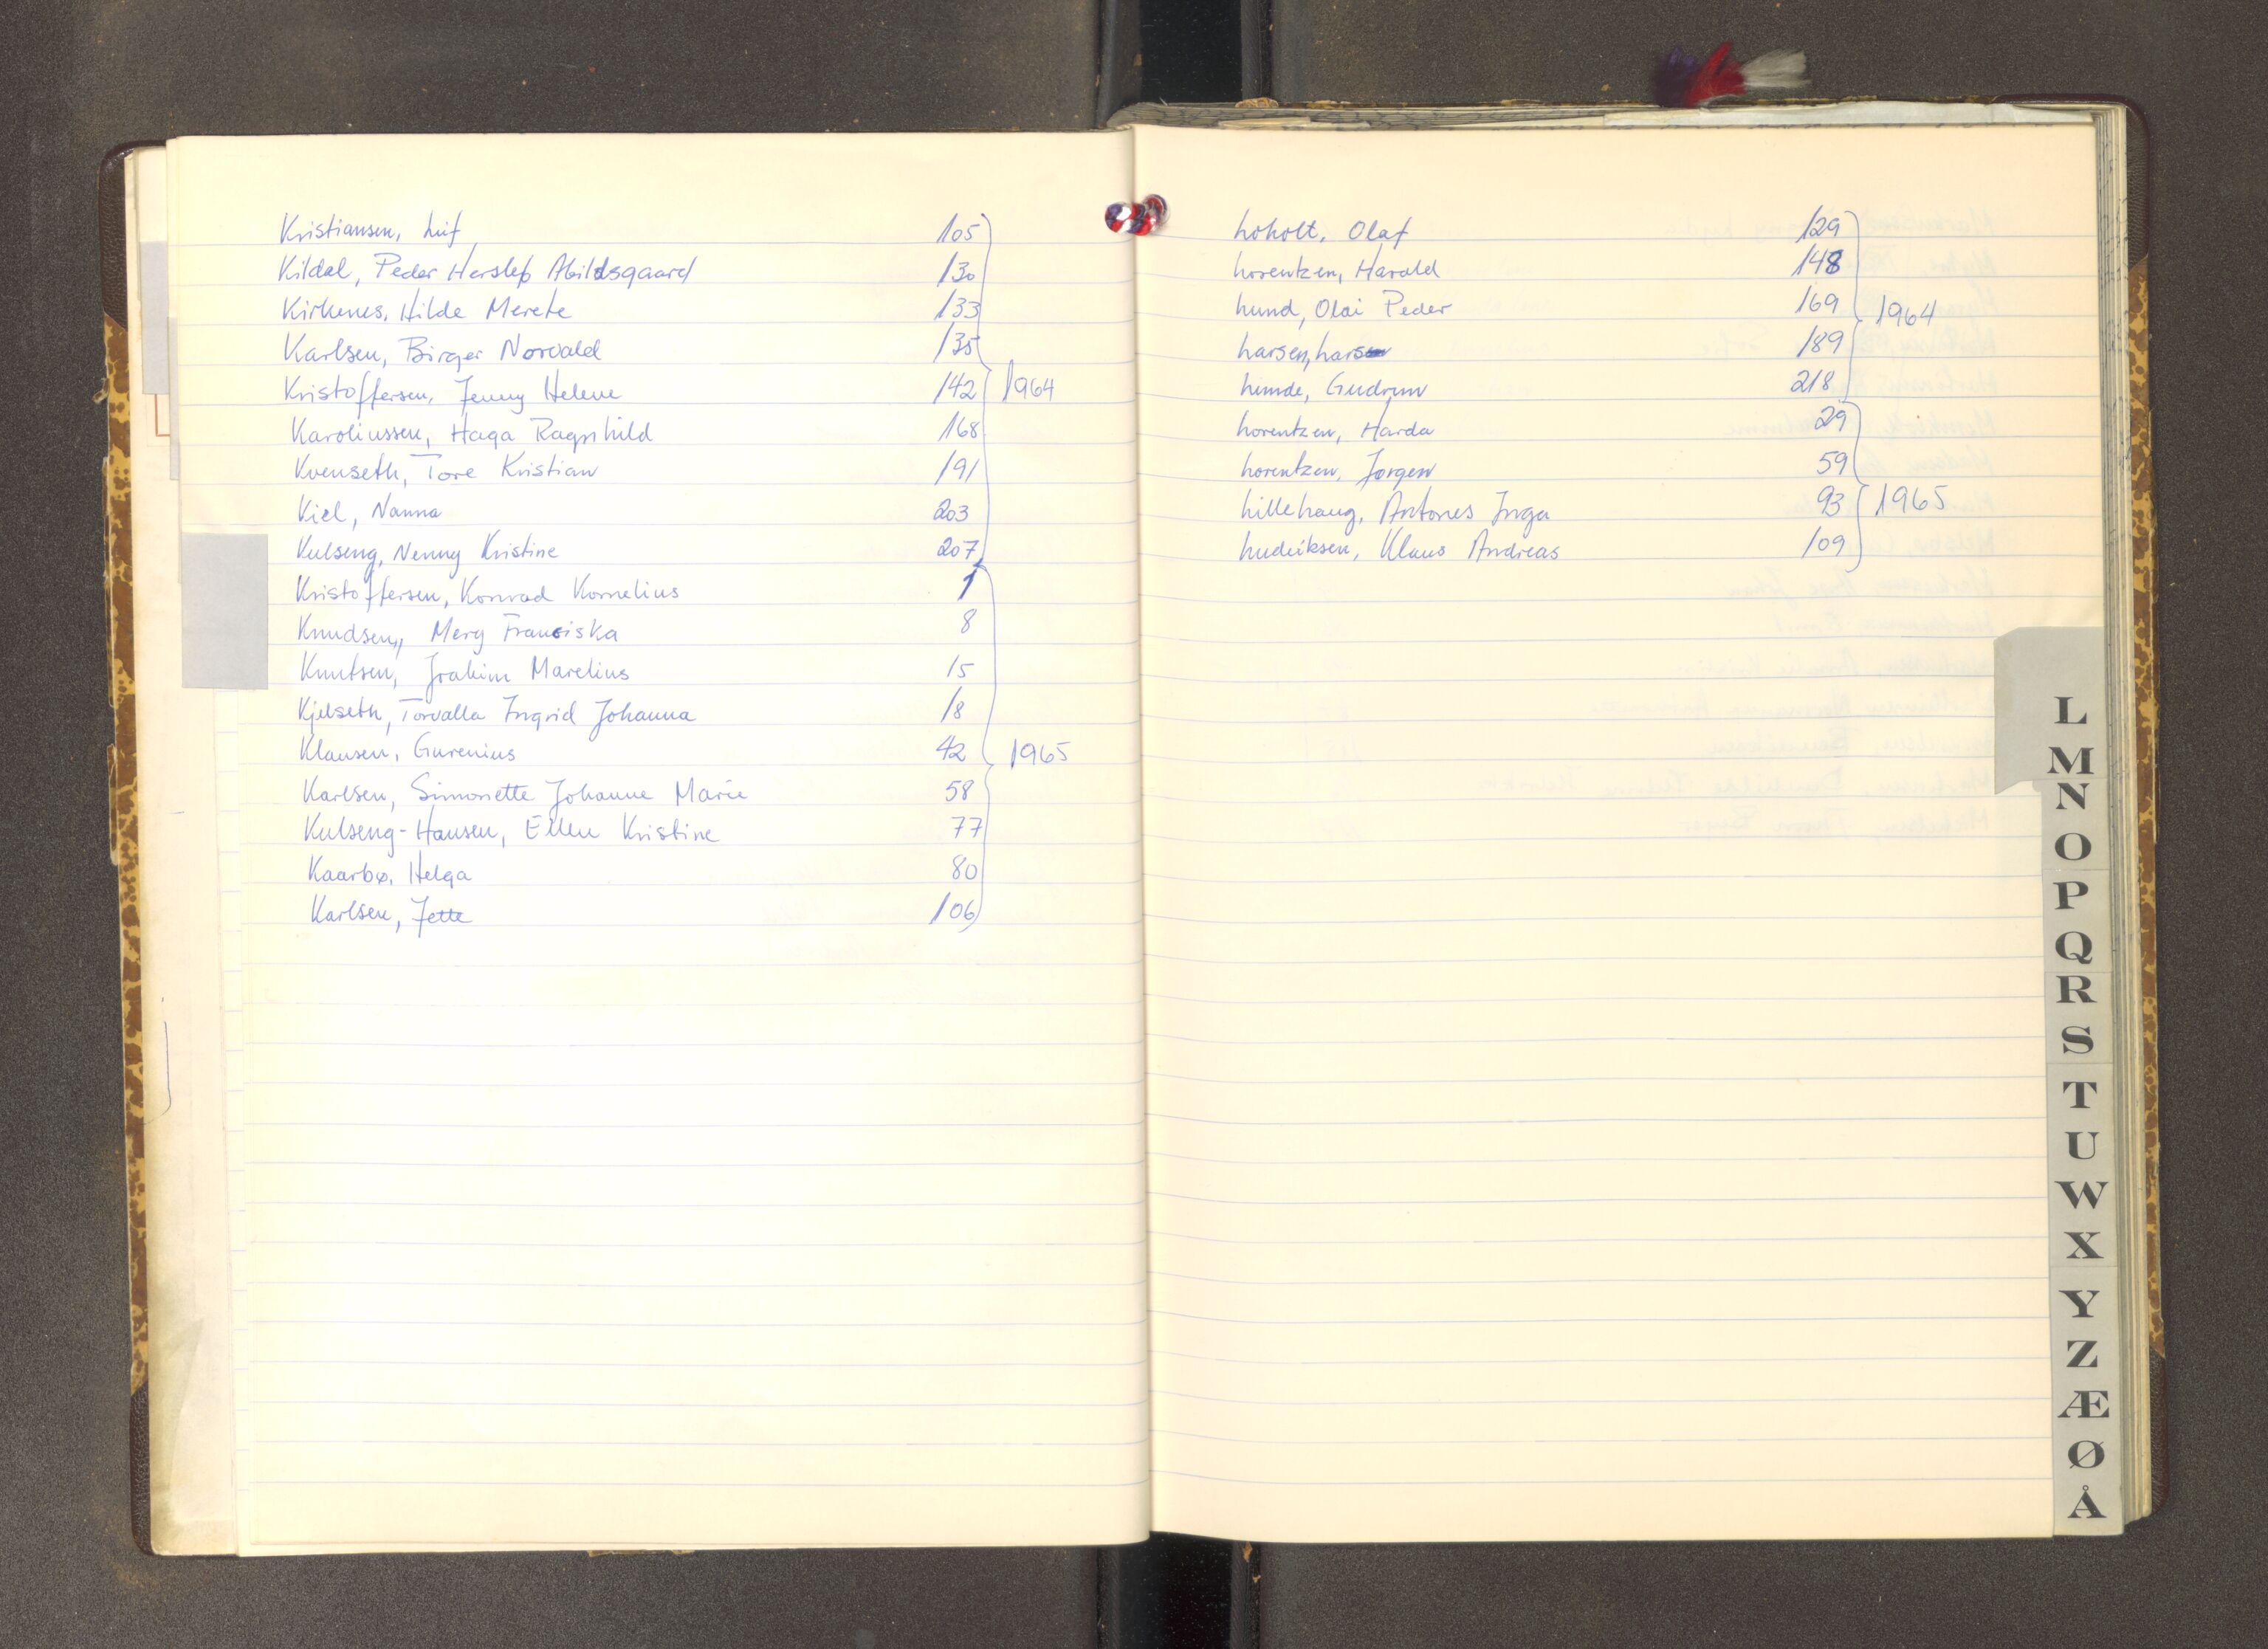 Kristiansen, Leif 105
Kildal, Peder Herslep Abildsgaard 130
Kirkenes, Hilde Merete 133
Karlsen, Birger Norvald 135
Kristoffersen, Jenny Helene 142 1964
Karoliussen, Haga Ragnhild 168
Kvenseth, Tore Kristian 191
Kiel, Nanna 203
Kulseng, Nenny Kristine 207
Kristoffersen, Konrad Kornelius 1
Knudsen, Mery Franciska 8
Knutsen, Joakim Marelius 15
Kjelseth, Torvalla Ingrid Johanna 18
Klausen, Gurenius 42 1965
Karlsen, Simonette Johanne Marie 58
Kulseng-Hansen, Ellen Kristine 77
Kaarbø, Helga 80
Karlsen, Jette 106
Loholt, Olaf 129
Lorentzen, Harald 148
Lund, Olai Peder 169 1964
Larsen, Lars 189
Limde, Gudrun 218
Lorentzen, Harda 29
Lorentzen, Jørgen 59
Lillehaug, Antones Inga 93 1965
Ludviksen, Klaus Andreas 109
L
M
N
O
P
Q
R
S
T
U
W
X
Y
Z
Æ
Ø
Å